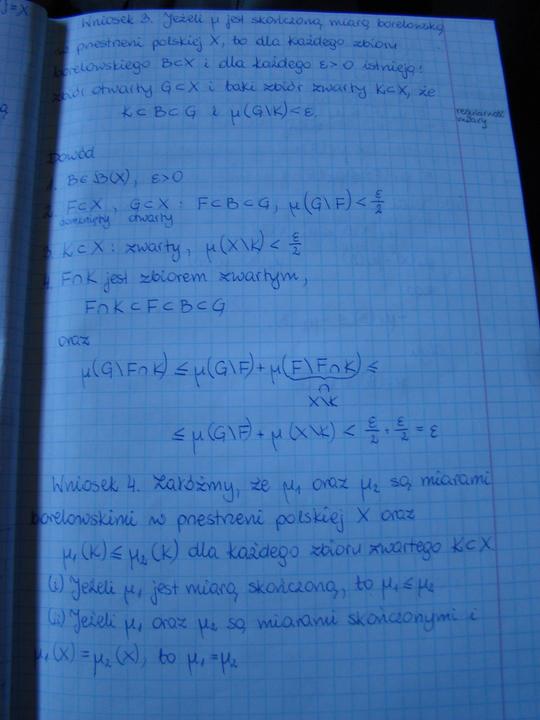 j=X
Wniosek 3. Jeżeli μ jest skończoną miarą borelowską
w przestrzeni polskiej X, to dla każdego zbioru
borelowskiego B⊂X i dla każdego ε>0 istnieją:
zbiór otwarty G⊂X i taki zbiór zwarty K⊂X, że
K⊂B⊂G i μ(G\K)<ε.
regularność
miary
Dowód
1. B∈B(X), ε>0
2. F⊂X, G⊂X : F⊂B⊂G, μ(G\F)<ε/2
domknięty otwarty
3. K⊂X: zwarty, μ(X\K)<ε/2
4. F∩K jest zbiorem zwartym,
F∩K⊂F⊂B⊂G
oraz
μ(G\F∩K) ≤ μ(G\F)+μ(F\F∩K) ≤
∩
X\K
≤ μ(G\F)+μ(X\K) < ε/2+ε/2 = ε
Wniosek 4. Załóżmy, że μ₁ oraz μ₂ są miarami
borelowskimi w przestrzeni polskiej X oraz
μ₁(K)≤μ₂(K) dla każdego zbioru zwartego K⊂X
(i) Jeżeli μ₁ jest miarą skończoną, to μ₁≤μ₂
(ii) Jeżeli μ₁ oraz μ₂ są miarami skończonymi i
μ₁(X)=μ₂(X), to μ₁=μ₂